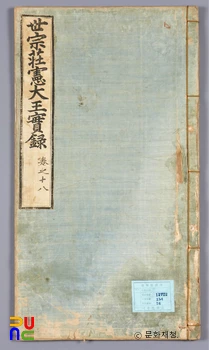 世宗莊憲大王實錄
卷之十八
ⓒ 문화재청